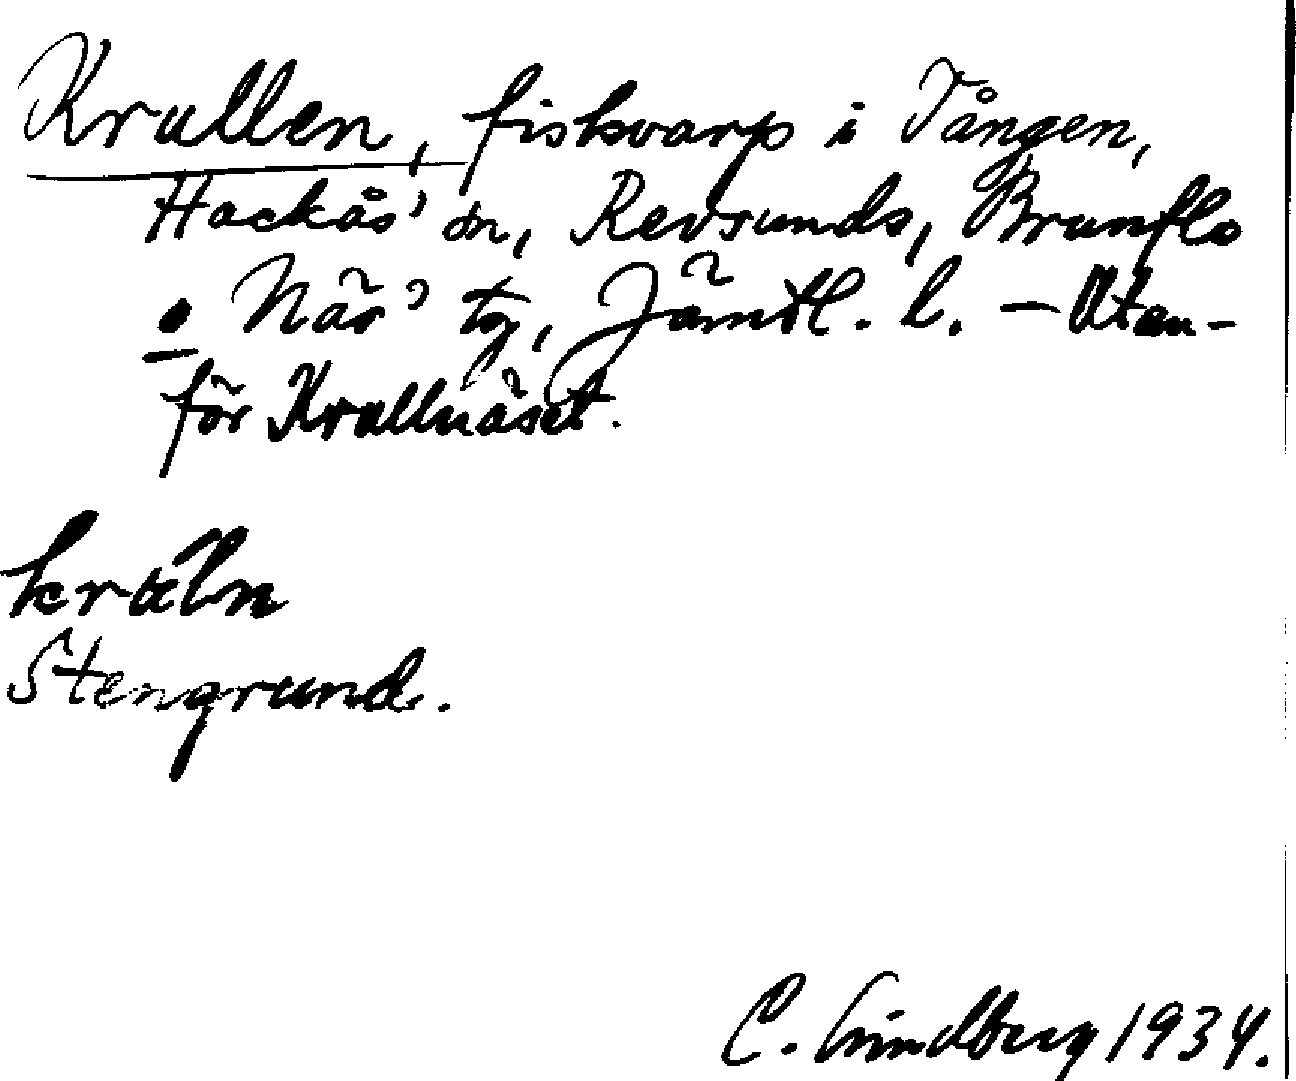 Krallen, fiskvarp i Tången,
Hackås' sn, Revsunds, Brunflo
o Näs' tg, Jämtl. l. – Utan-
för Krallnäset.
králn
Stengrund.
C. Lindberg 1934.